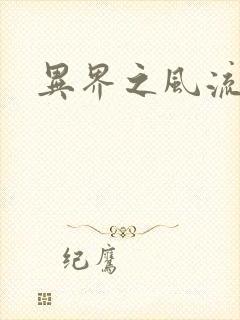 異界之風流
纪鹰